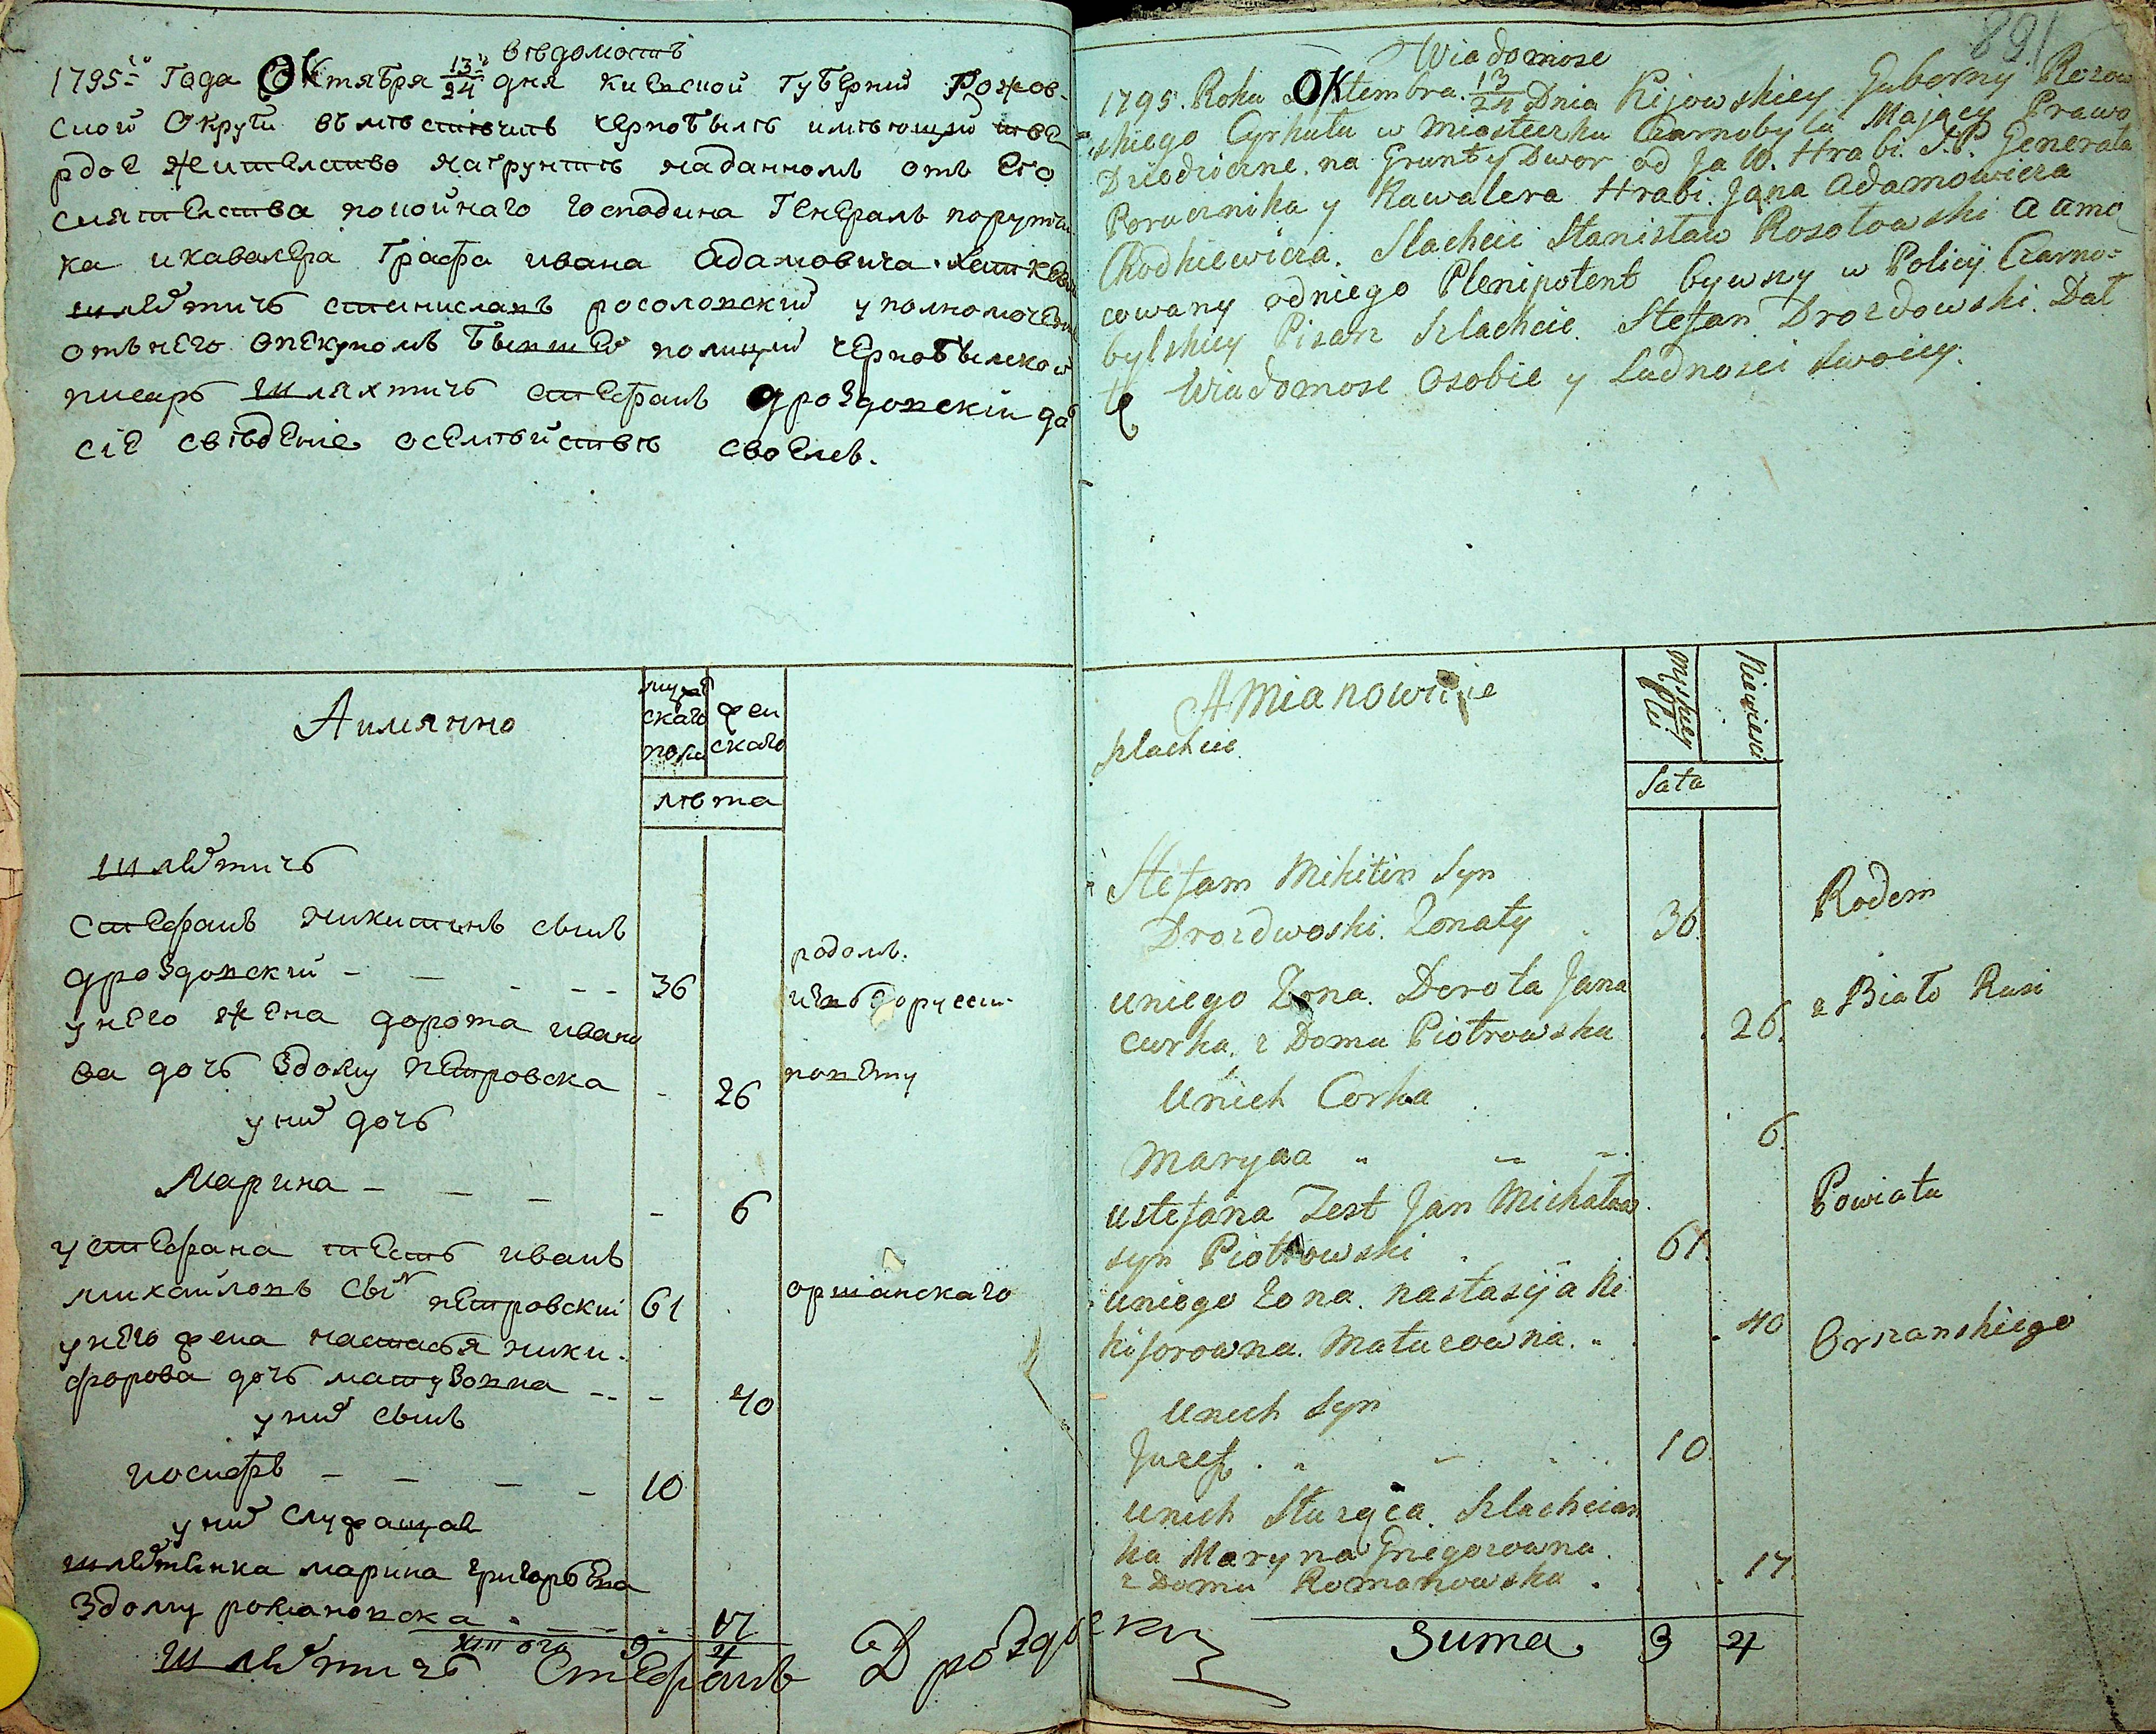 вѣдомость
1795го Года Октября 13/24 дня Киевской Губернии Рожов-
ской Округи въ мѣстѣчкѣ чернобылѣ имѣющий тве
рдое жителство на грунтѣ наданномъ отъ Его
сиятелства покойнаго Господина Генералъ порутчи
ка и кавалера Графа ивана Адамовича Хаткеви
шляхтичь станиславъ росоловский уполномочены
отънего опекуномъ бывшей полиции чернобылской
писарь шляхтичь стефанъ дроздовский да
сіе свѣдение осемѣйствѣ своемъ.
Аимянно
мужескаго пола
женскаго
лѣта
шляхтичь
Стефанъ никитинъ сынъ
дроздовский - - - - - 36
родомъ.
унего жена дорота ивано
избѣлорусси
ва дочь здому петровска - 26
повѣту
уних дочь
Марина - - - - 6
устефана тесть иванъ
михаиловъ сын петровский 61
оршанскаго
унего жена настасья ники-
форова дочь матузовна -- - 40
уних сынъ
иосифъ - - - - 10
уних служащая
шляхтянка марина григорьева
здому романовска - - - - 17
итого 3 4
шляхтичь Стефанъ Дроздовски
891
Wiadomosc
1795. Roku Oktembra. 13/24 Dnia Kijowskiey Guberny Rozow
skiego Cyrkułu w miasteczku Czarnobylu Maiący Prawo
Dziedziczne. na Grunty Dwor od Ja W. Hrabi. J.P. Generała
Porucznika y Kawalera Hrabi. Jana Adamowicza
Chodkiewicza. Slachcic Stanisław Rosołowski a umo
cowany odniego Plenipotent bywszy w Policyi Czarno=
bylskiey Pisarz Szlachcic Stefan Drozdowski. Dał
tę Wiadomosc Osobie y Ludnosci swoiey.
A Mianowicie
męskiey płci
Niewiesci
szlachcic
Lata
Stefam Mikitin Syn
Rodem
Drozdwoski. Zonaty . 36.
uniego Zona. Dorota Jana
z Biało Rusi
curka. z Domu Piotrowska . 26.
Unich Corka
Maryaa " - - 6.
Powiatu
ustefana Test Jan Michałow
syn Piotrowski . 61.
uniego Zona. nastasyja Ni
kiforowna. Matuzowna. " . 40
Orszanskiego
Unich syn
Juzef . " - . 10.
unich Słuząca. Szlachcian
ka Maryna Gregorowna.
z Domu Romanowska . . 17.
Suma 3 4